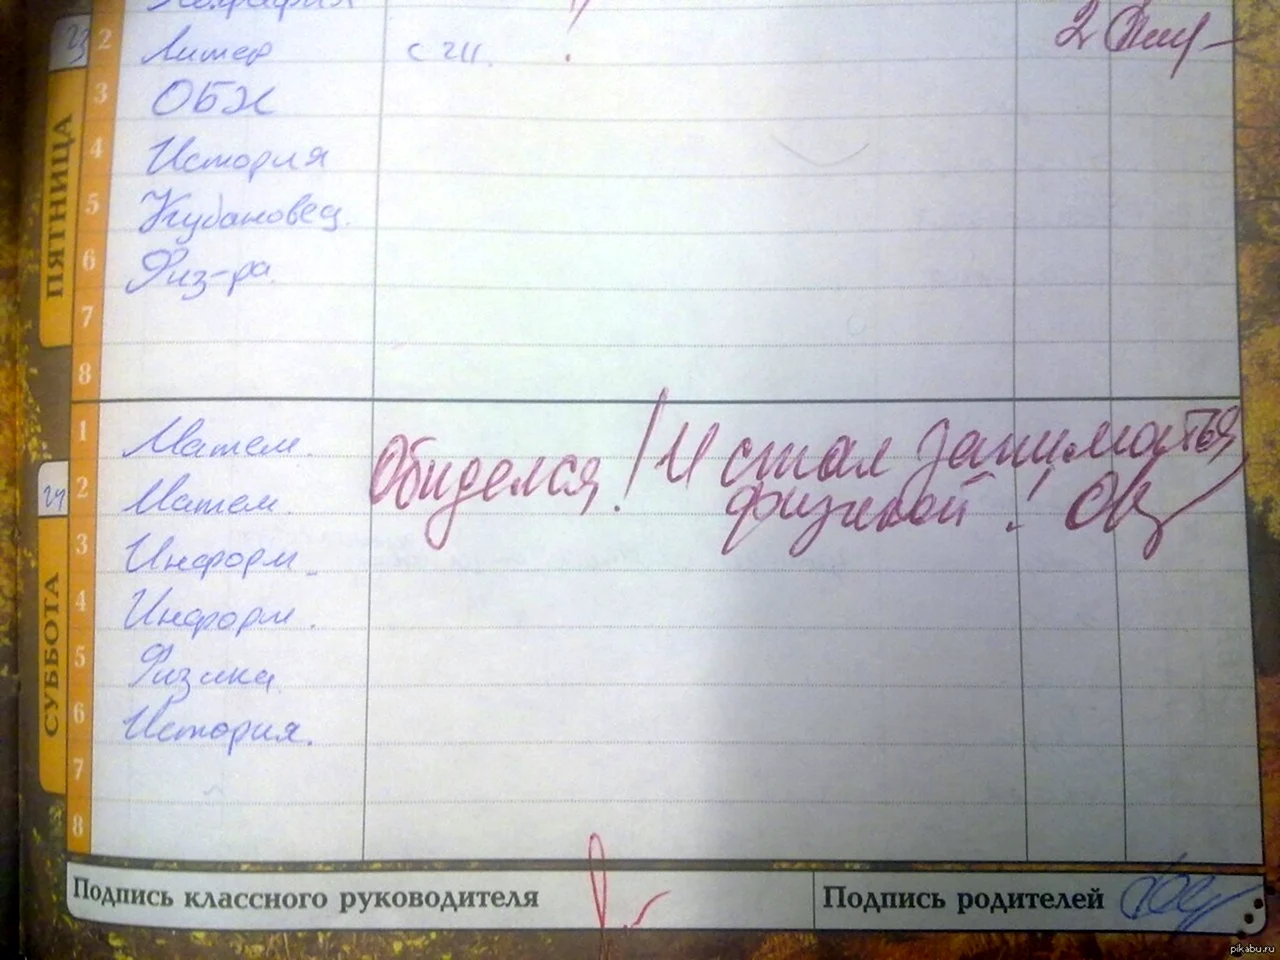 География
23
ПЯТНИЦА
2 Литер с 211. 2
3 ОБЖ
4 История
5 Кубановед.
6 Физ-ра.
7
8
24
СУББОТА
1 Матем. Обиделся! И стал заниматься
2 Матем. физикой!
3 Информ.
4 Информ.
5 Физика
6 История.
7
8
Подпись классного руководителя
Подпись родителей
pikabu.ru